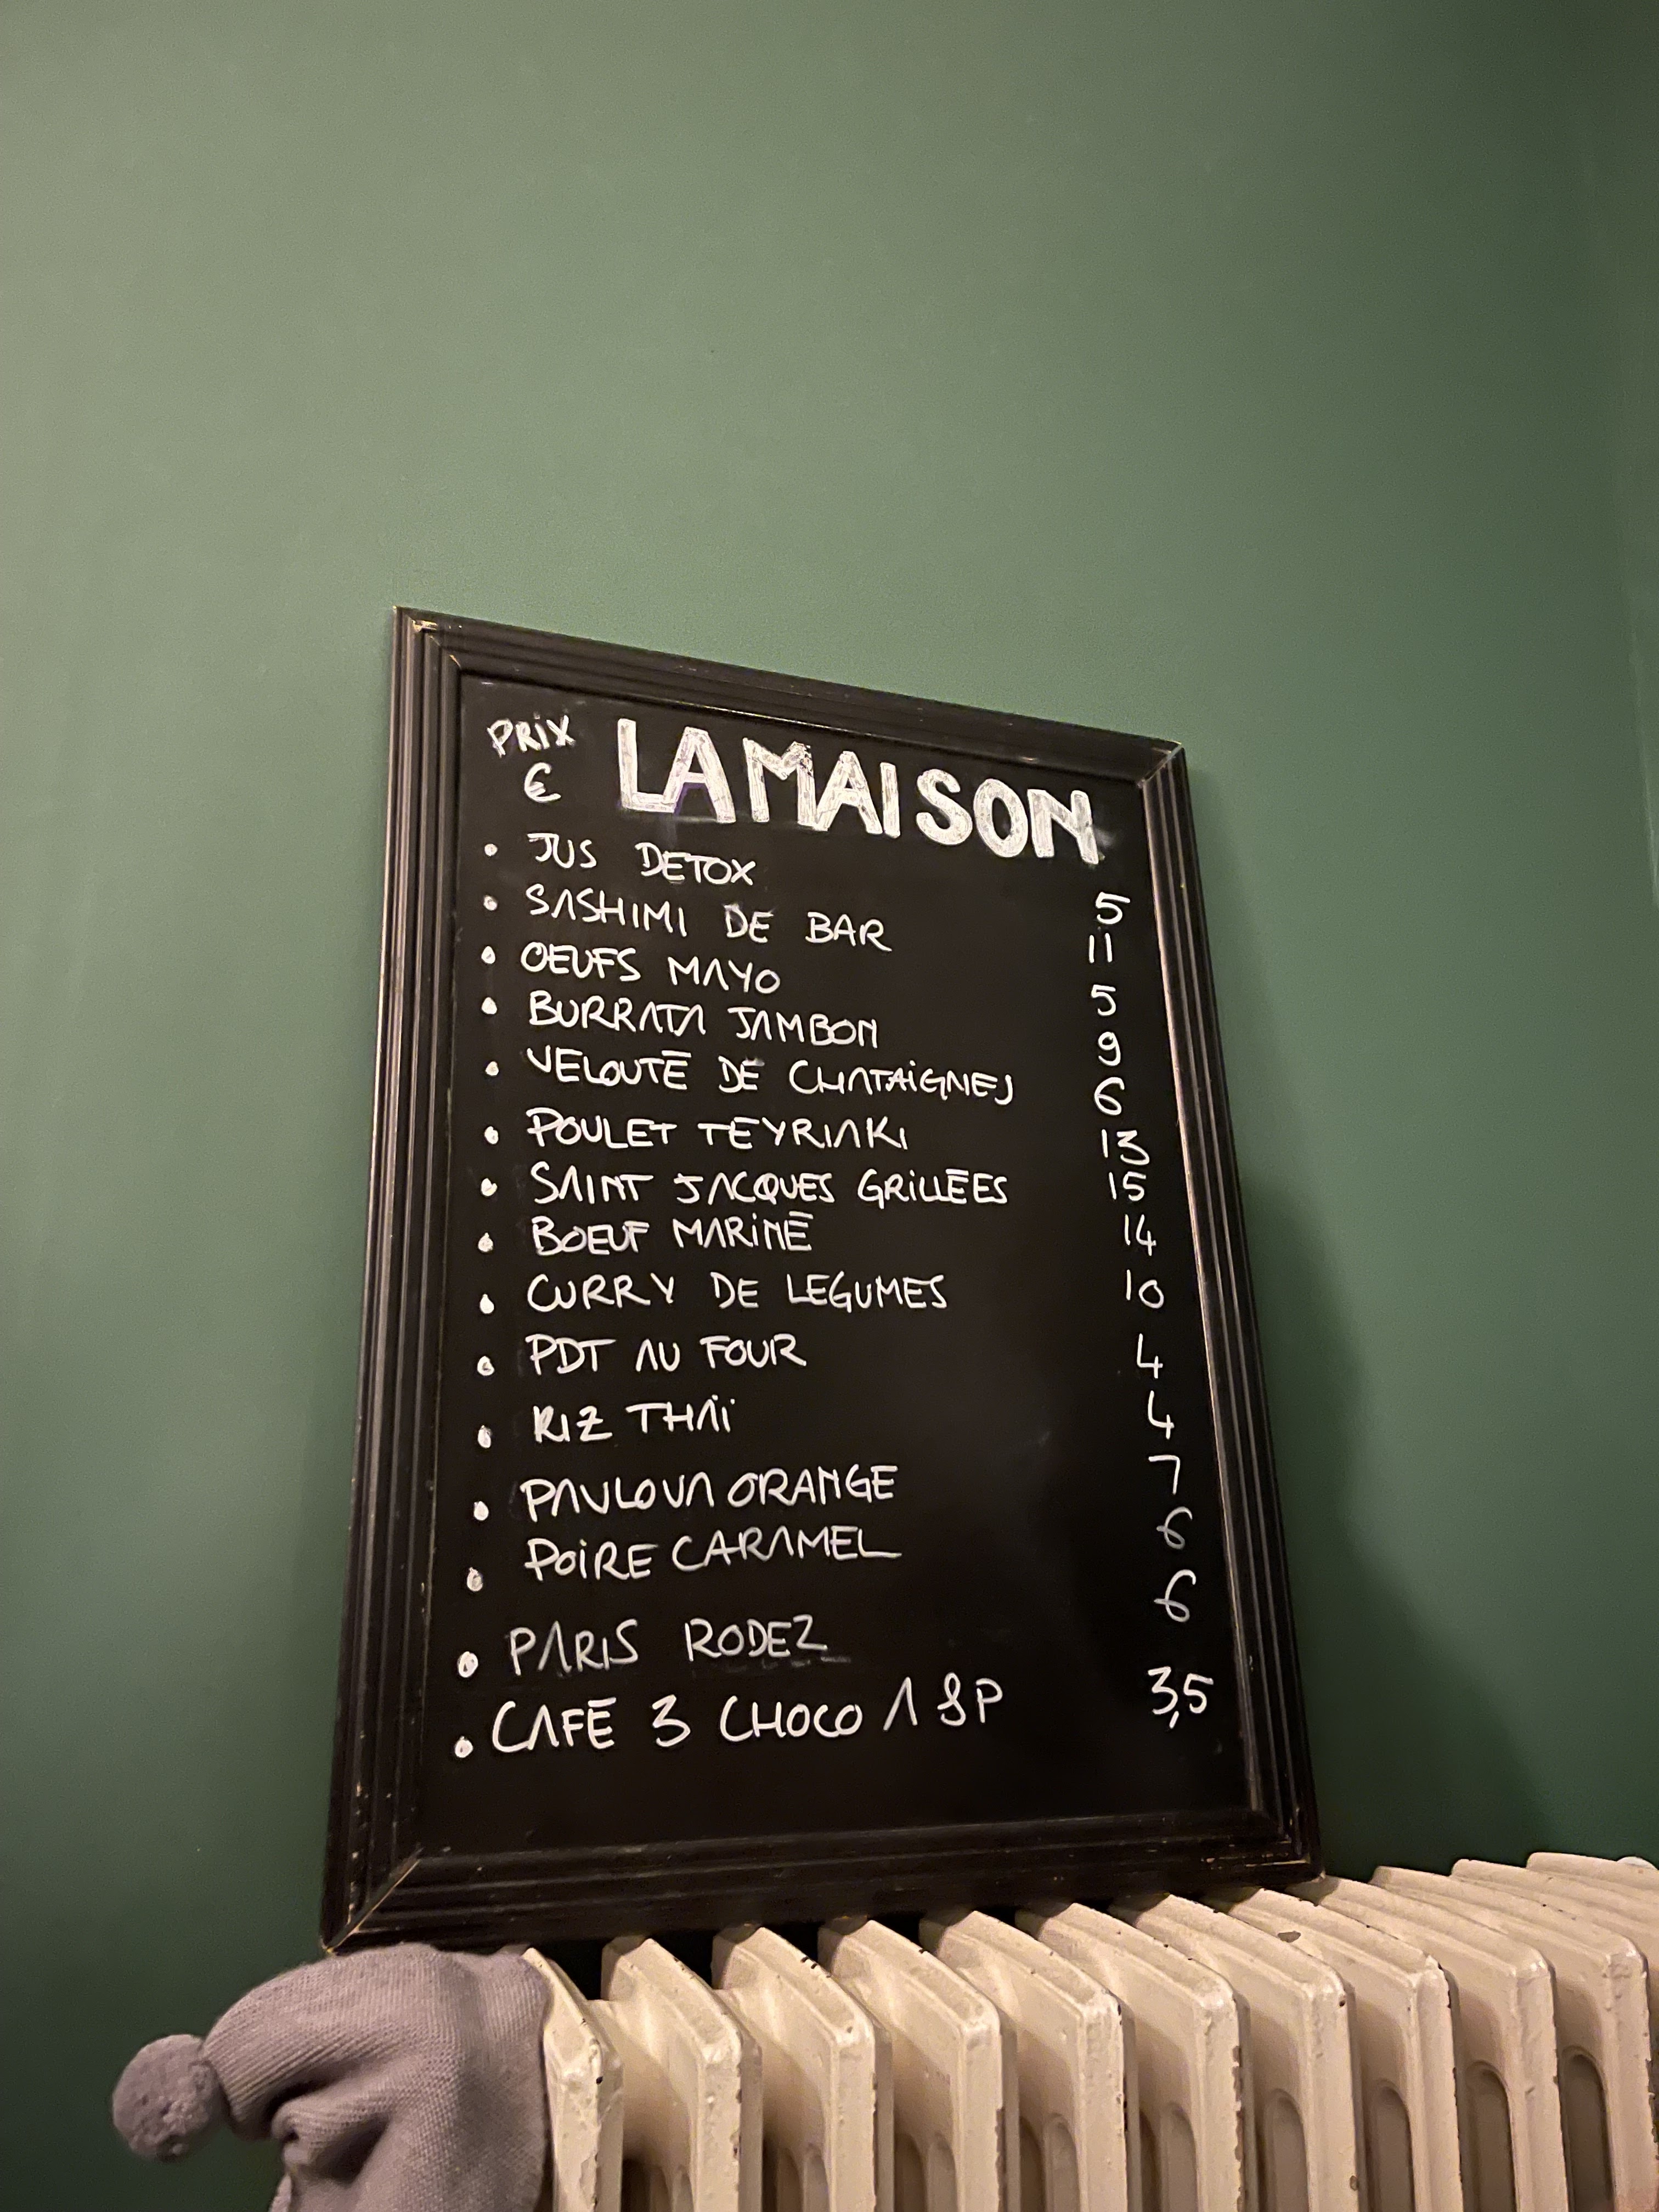 PRIX
€
LA MAISON
• JUS DETOX 5
• SASHIMI DE BAR 11
• OEUFS MAYO 5
• BURRATA JAMBON 9
• VELOUTÉ DE CHATAIGNES 6
• POULET TEYRIAKI 13
• SAINT JACQUES GRILLÉES 15
• BOEUF MARINÉ 14
• CURRY DE LEGUMES 10
• PDT AU FOUR 4
• RIZ THAÏ 4
• PAVLOVA ORANGE 7
• POIRE CARAMEL 6
• PARIS RODEZ 6
• CAFÉ 3 CHOCO A SP 3,5